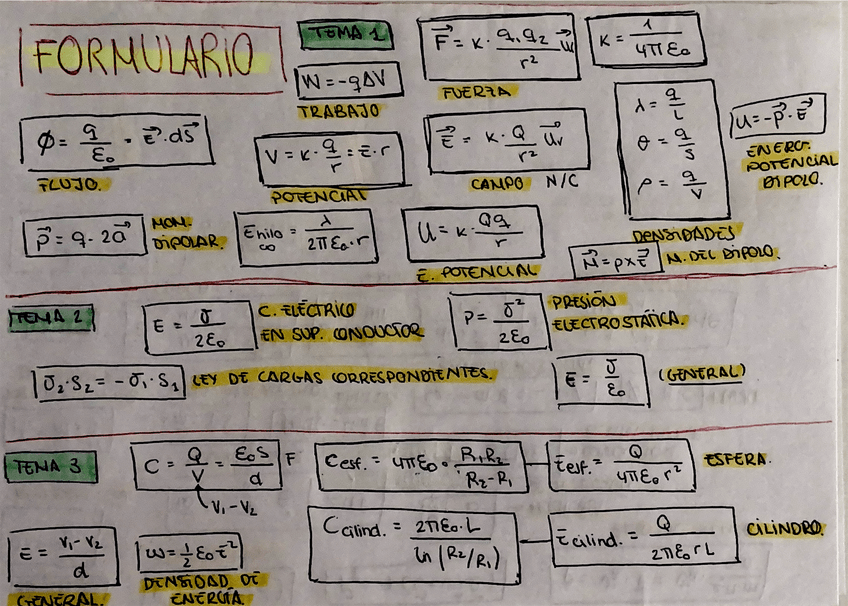 FORMULARIO
TEMA 1
W = -qΔV
TRABAJO
F⃗ = K · q₁q₂/r² u⃗
FUERZA
K = 1/4πε₀
ϕ = q/ε₀ = E⃗ · dS⃗
FLUJO.
V = K · q/r = E · r
POTENCIAL
E⃗ = K · Q/r² u⃗v
CAMPO N/C
λ = q/L
θ = q/S
ρ = q/V
DENSIDADES
U = -p⃗ · E⃗
ENERG.
POTENCIAL
DIPOLO.
p⃗ = q · 2a⃗
MOM.
DIPOLAR.
E hilo ∞ = λ/2πε₀ · r
U = K · Qq/r
E. POTENCIAL
M⃗ = p x E⃗
M. DEL DIPOLO.
TEMA 2
E = σ/2ε₀
C. ELÉCTRICO
EN SUP. CONDUCTOR
P = σ²/2ε₀
PRESIÓN
ELECTROSTÁTICA.
σ₂ · S₂ = -σ₁ · S₁
LEY DE CARGAS CORRESPONDIENTES.
E = σ/ε₀
(GENERAL)
TEMA 3
C = Q/V = ε₀S/d F
V₁-V₂
C esf. = 4πε₀ · R₁R₂/R₂-R₁
E esf. = Q/4πε₀r²
ESFERA.
E = V₁-V₂/d
GENERAL.
w = 1/2 ε₀E²
DENSIDAD DE
ENERGÍA
C cilind. = 2πε₀·L/ln(R₂/R₁)
E cilind. = Q/2πε₀rL
CILINDRO.